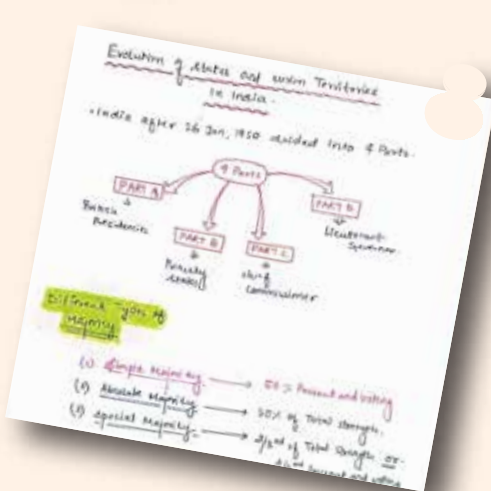 Evolution of States and Union Territories
in India.
India after 26 Jan, 1950 divided into 4 Parts.
4 Parts
PART A
PART B
PART C
PART D
British
Presidencies
Princely
States
Chief
Commissioner
Lieutenant
Governor
Different Types of
Majority
(1) Simple Majority 50% Present and voting
(2) Absolute Majority 50% of Total Strength.
(3) Special Majority 2/3rd of Total Strength or
Present and voting